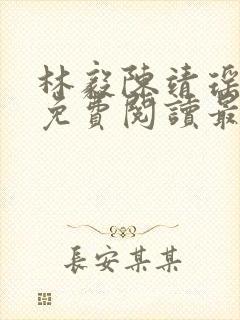 林毅陳靖瑶
免費閱讀最
長安某某